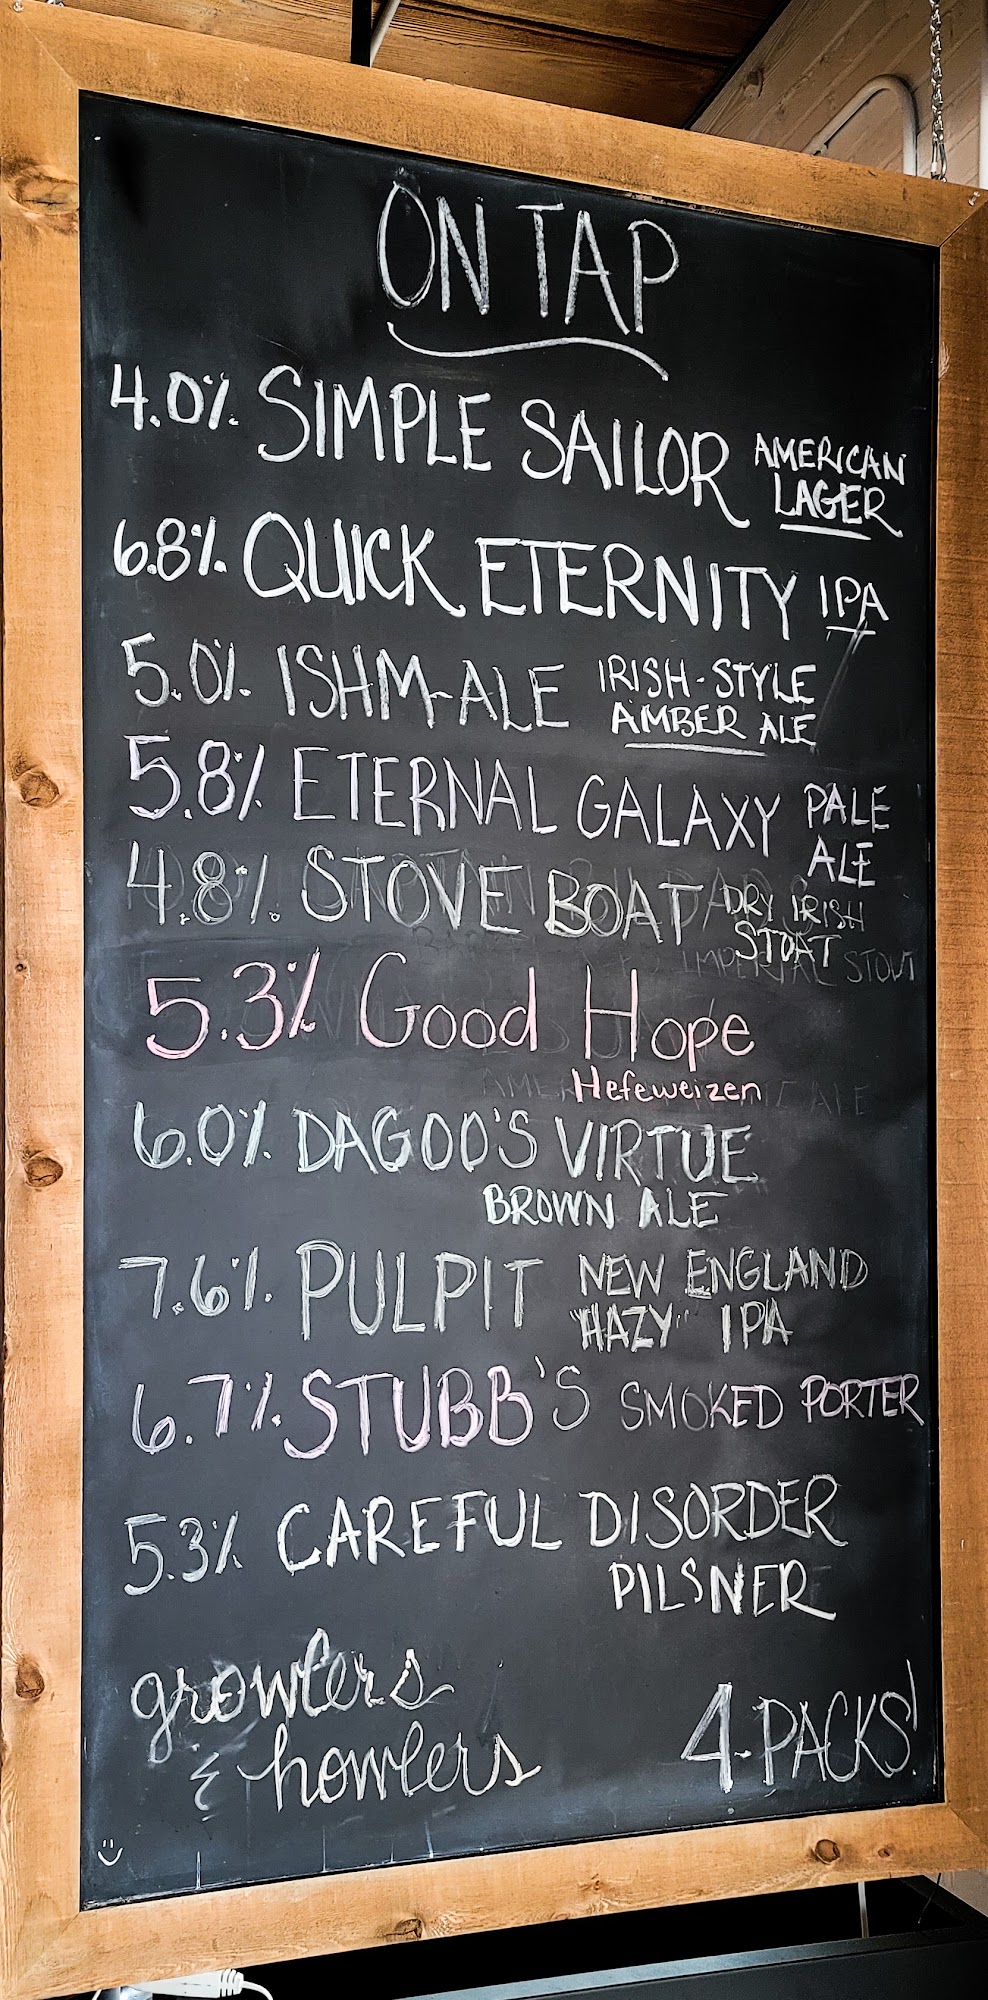 ON TAP
4.0% SIMPLE SAILOR AMERICAN
LAGER
6.8% QUICK ETERNITY IPA
5.0% ISHM-ALE IRISH-STYLE
AMBER ALE
5.8% ETERNAL GALAXY PALE
ALE
4.8% STOVE BOAT DRY IRISH
STOAT
IMPERIAL STOUT
5.3% Good Hope
Hefeweizen
6.0% DAGOO'S VIRTUE
BROWN ALE
7.6% PULPIT NEW ENGLAND
"HAZY" IPA
6.7% STUBB'S SMOKED PORTER
5.3% CAREFUL DISORDER
PILSNER
growlers
& howlers
4-PACKS!